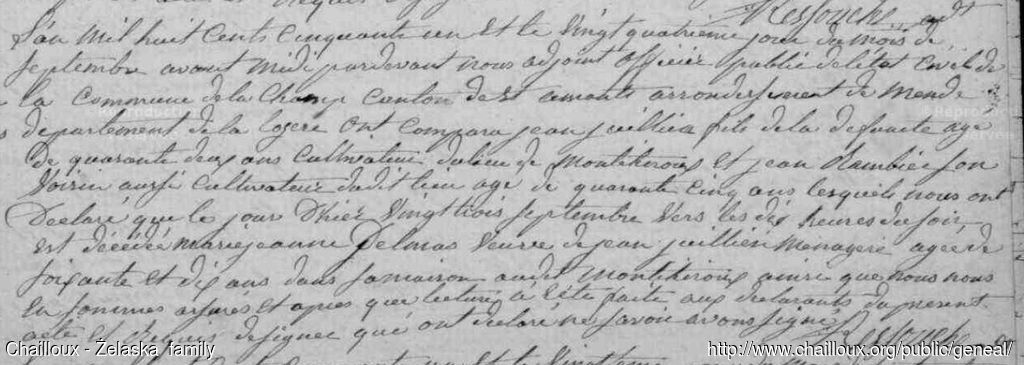 Ressouche adt
L'an mil huit cents cinquante un et le vingt quatrieme jour du mois de
Septembre avant midi pardevant nous adjoint officier public de l'état civil de
la commune de la Champ canton de St amants arrondissement de Mende
département de la lozere ont comparu jean juillien fils de la defunte age
de quarante deux ans cultivateur du lieu de et jean son
voisin aussi cultivateur dudit lieu age de quarante cinq ans lesquels nous ont
Declaré que le jour D'hier vingt trois Septembre vers les dix heures du soir
est décédée marie jeanne Delmas veuve de jean juillien menagere agée de
soixante et dix ans dans sa maison audit ainsi que nous nous
en sommes assurés et apres que lecture à été faite aux declarants du present
acte et requis de signer qui ont declaré ne savoir avons signé Ressouche
Chailloux - Želaska family
http://www.chailloux.org/public/geneal/